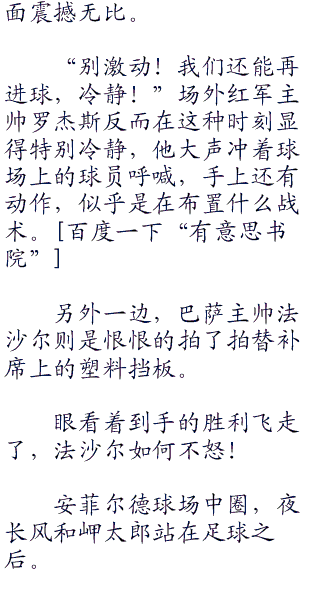 面震撼无比。
“别激动！我们还能再
进球，冷静！”场外红军主
帅罗杰斯反而在这种时刻显
得特别冷静，他大声冲着球
场上的球员呼喊，手上还有
动作，似乎是在布置什么战
术。[百度一下“有意思书
院”]
另外一边，巴萨主帅法
沙尔则是恨恨的拍了拍替补
席上的塑料挡板。
眼看着到手的胜利飞走
了，法沙尔如何不怒！
安菲尔德球场中圈，夜
长风和岬太郎站在足球之
后。